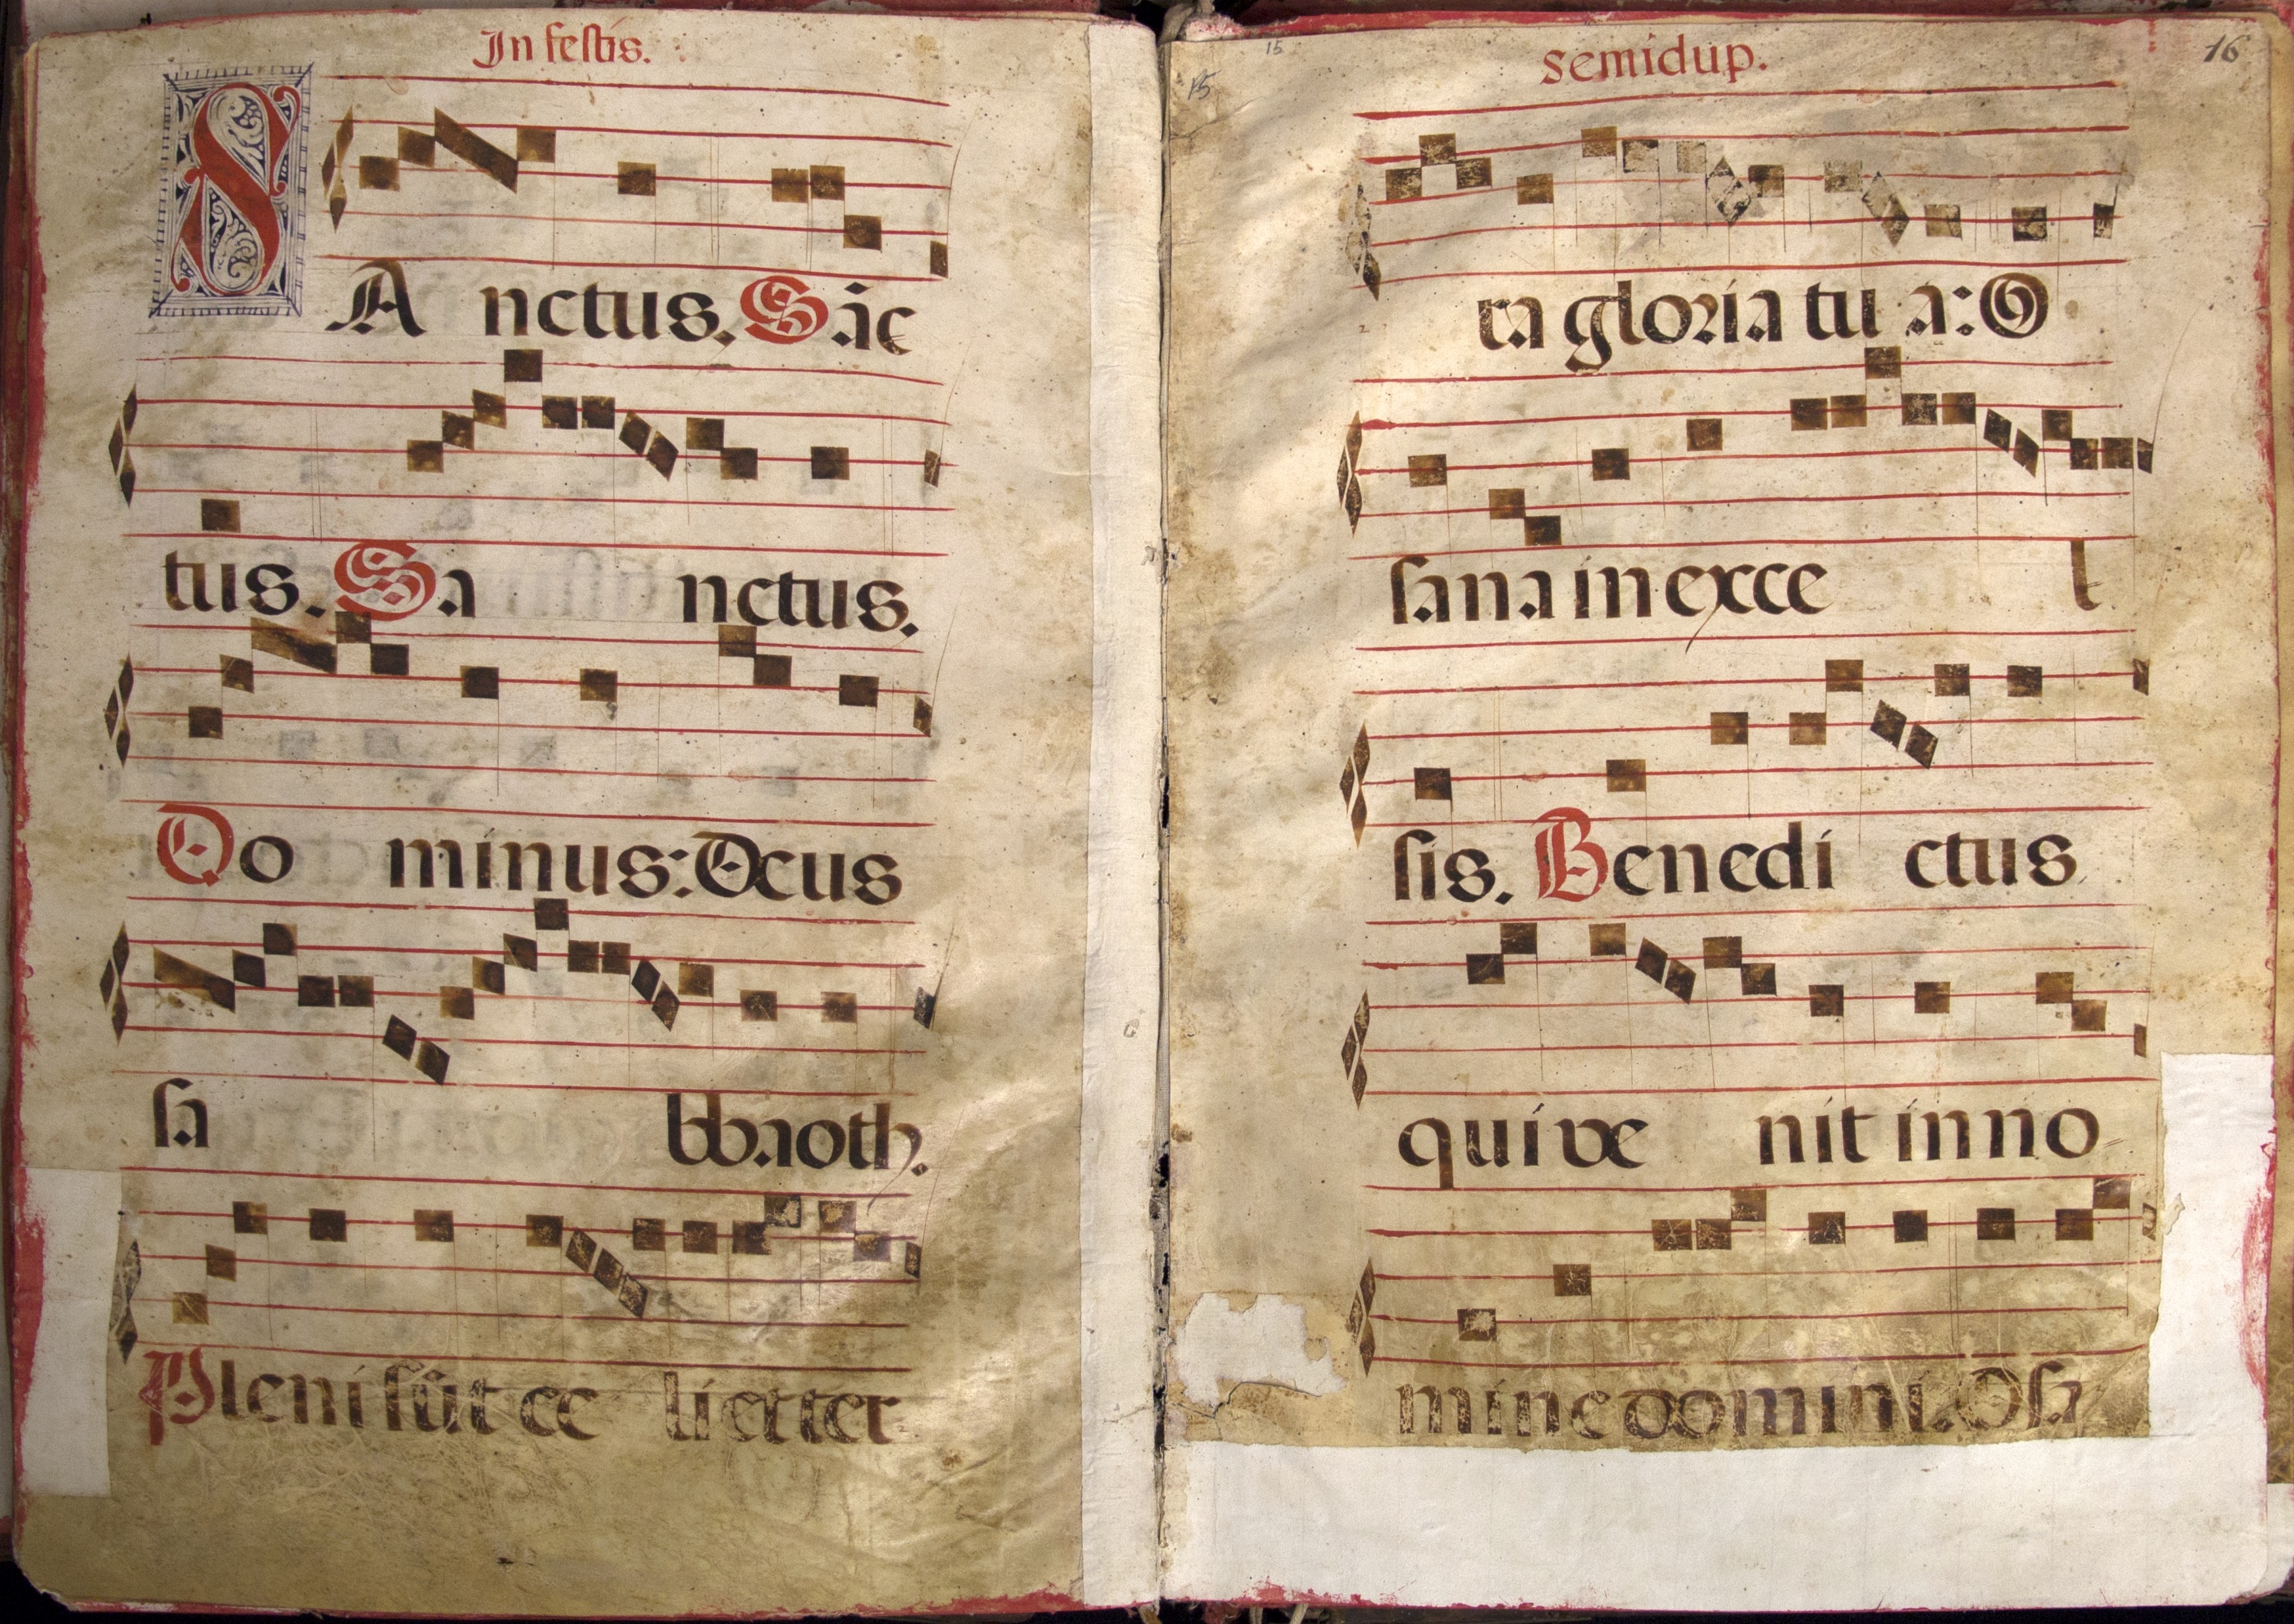 In festis.
SA nctus. Sāc
tus. Sa nctus.
Do minus: Deus
sa bbaoth.
Pleni sūt ce li et ter
15
15
semidup.
16
ra gloria tu a: O
sana in exce l
sis. Benedi ctus
qui ve nit in no
mine domini. Osa